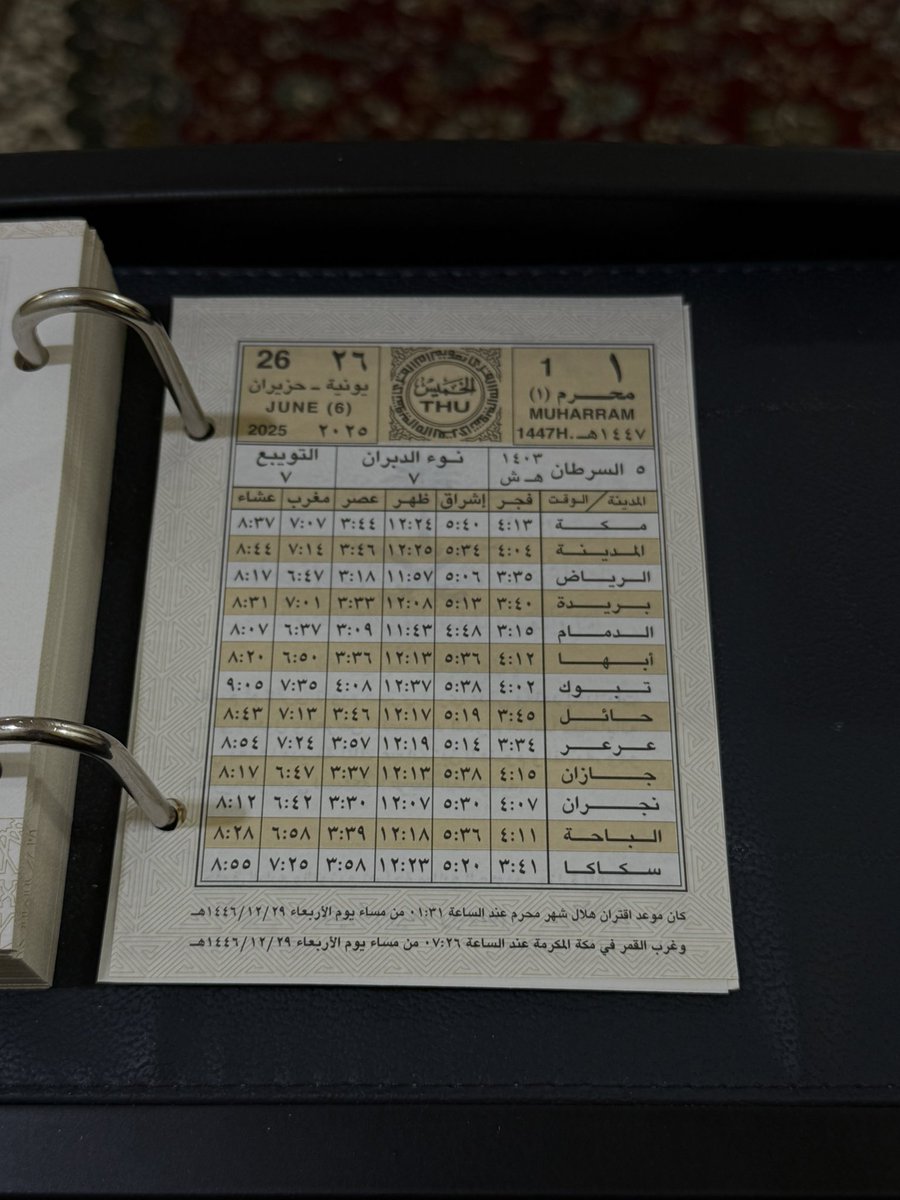 ١ 1
محـــرم (١)
MUHARRAM
1447H. ١٤٤٧هـ
تقويم أم القرى
الخميس
THU
26 ٢٦
يونية ـ حزيران
JUNE (6)
2025 ٢٠٢٥
٥ السرطان ١٤٠٣ هـ ش
نوء الدبران ٧
التويبع ٧
المدينة / الوقت فجر إشراق ظهر عصر مغرب عشاء
مكـــة ٤:١٣ ٥:٤٠ ١٢:٢٤ ٣:٤٤ ٧:٠٧ ٨:٣٧
المدينـة ٤:٠٤ ٥:٣٤ ١٢:٢٥ ٣:٤٦ ٧:١٤ ٨:٤٤
الريـاض ٣:٣٥ ٥:٠٦ ١١:٥٧ ٣:١٨ ٦:٤٧ ٨:١٧
بريـدة ٣:٤٠ ٥:١٣ ١٢:٠٨ ٣:٣٣ ٧:٠١ ٨:٣١
الدمـام ٣:١٥ ٤:٤٨ ١١:٤٣ ٣:٠٩ ٦:٣٧ ٨:٠٧
أبهـــا ٤:١٢ ٥:٣٦ ١٢:١٣ ٣:٣٦ ٦:٥٠ ٨:٢٠
تبـوك ٤:٠٢ ٥:٣٨ ١٢:٣٧ ٤:٠٨ ٧:٣٥ ٩:٠٥
حائـل ٣:٤٥ ٥:١٩ ١٢:١٧ ٣:٤٦ ٧:١٣ ٨:٤٣
عرعر ٣:٣٤ ٥:١٤ ١٢:١٩ ٣:٥٧ ٧:٢٤ ٨:٥٤
جازان ٤:١٥ ٥:٣٨ ١٢:١٣ ٣:٣٧ ٦:٤٧ ٨:١٧
نجـران ٤:٠٧ ٥:٣٠ ١٢:٠٧ ٣:٣٠ ٦:٤٢ ٨:١٢
الباحـة ٤:١١ ٥:٣٦ ١٢:١٨ ٣:٣٩ ٦:٥٨ ٨:٢٨
سكاكا ٣:٤١ ٥:٢٠ ١٢:٢٣ ٣:٥٨ ٧:٢٥ ٨:٥٥
كان موعد اقتران هلال شهر محرم عند الساعة ٠١:٣١ من مساء يوم الأربعاء ١٤٤٦/١٢/٢٩هـ
وغرب القمر في مكة المكرمة عند الساعة ٠٧:٢٦ من مساء يوم الأربعاء ١٤٤٦/١٢/٢٩هـ